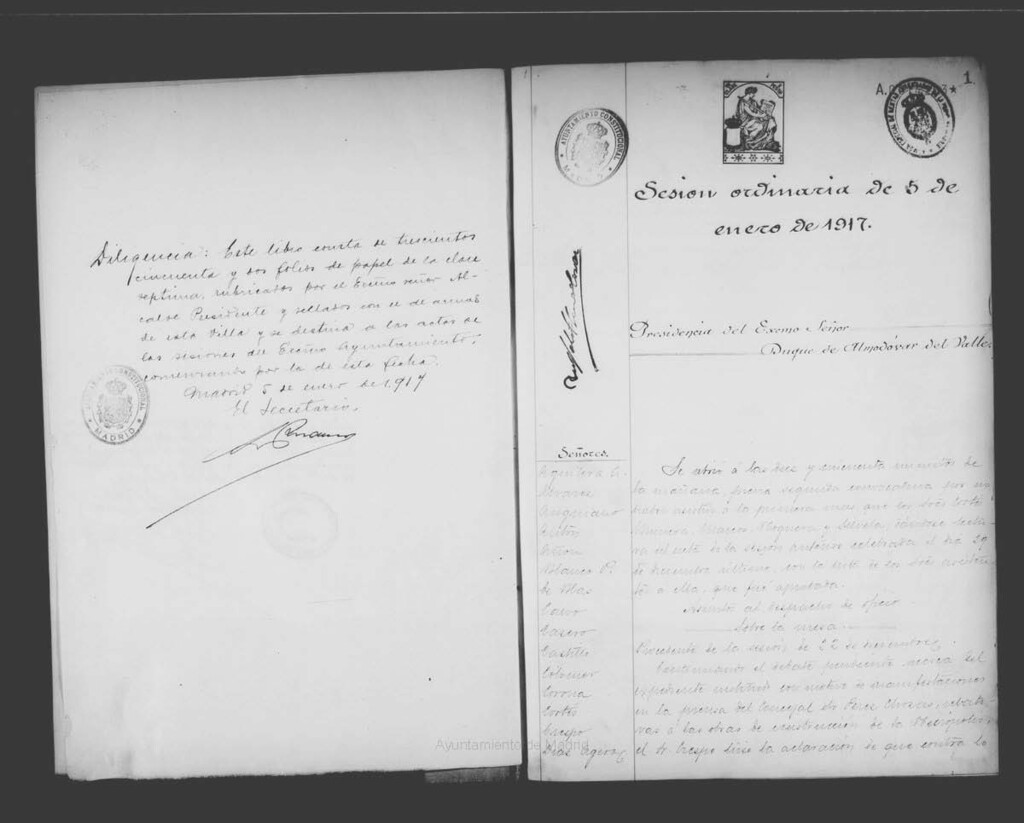 Diligencia: Este libro consta de trescientos
cincuenta y dos folios de papel de la clase
septima, rubricados por el Excmo señor Al-
calde Presidente y sellados con el de armas
de esta Villa y se destina a las actas de
las sesiones del Excmo Ayuntamiento,
comenzando por la de esta fecha.
Madrid 5 de enero de 1917
El Secretario,
MADRID
AYUNTAMIENTO CONSTITUCIONAL
MADRID
A.
1
Sesion ordinaria de 5 de
enero de 1917.
Presidencia del Excmo Señor
Duque de Almodóvar del Valle
Señores
Aguilera
Alvarez
Anguiano
de Blas
Casero
Castillo
Colomer
Corona
Cortés
Crespo
Se abrió á las diez y cincuenta minutos de
la mañana, previa segunda convocatoria por no
haber asistido á la primera mas que los Sres Cortés
Noguera y
ra el acta de la sesion anterior celebrada el dia 29
de diciembre último, con la de los Sres
á ella, que fué aprobada.
Asuntos al despacho de oficio
Sobre la mesa
Procedente de la sesión de 22 de diciembre,
Continuando el debate pendiente acerca del
expediente instruido con motivo de manifestaciones
en la prensa del Concejal Sr.
vas á las obras de construcción de la Necropolis
el Sr Crespo hizo la aclaración de que contra lo
Ayuntamiento de Madrid